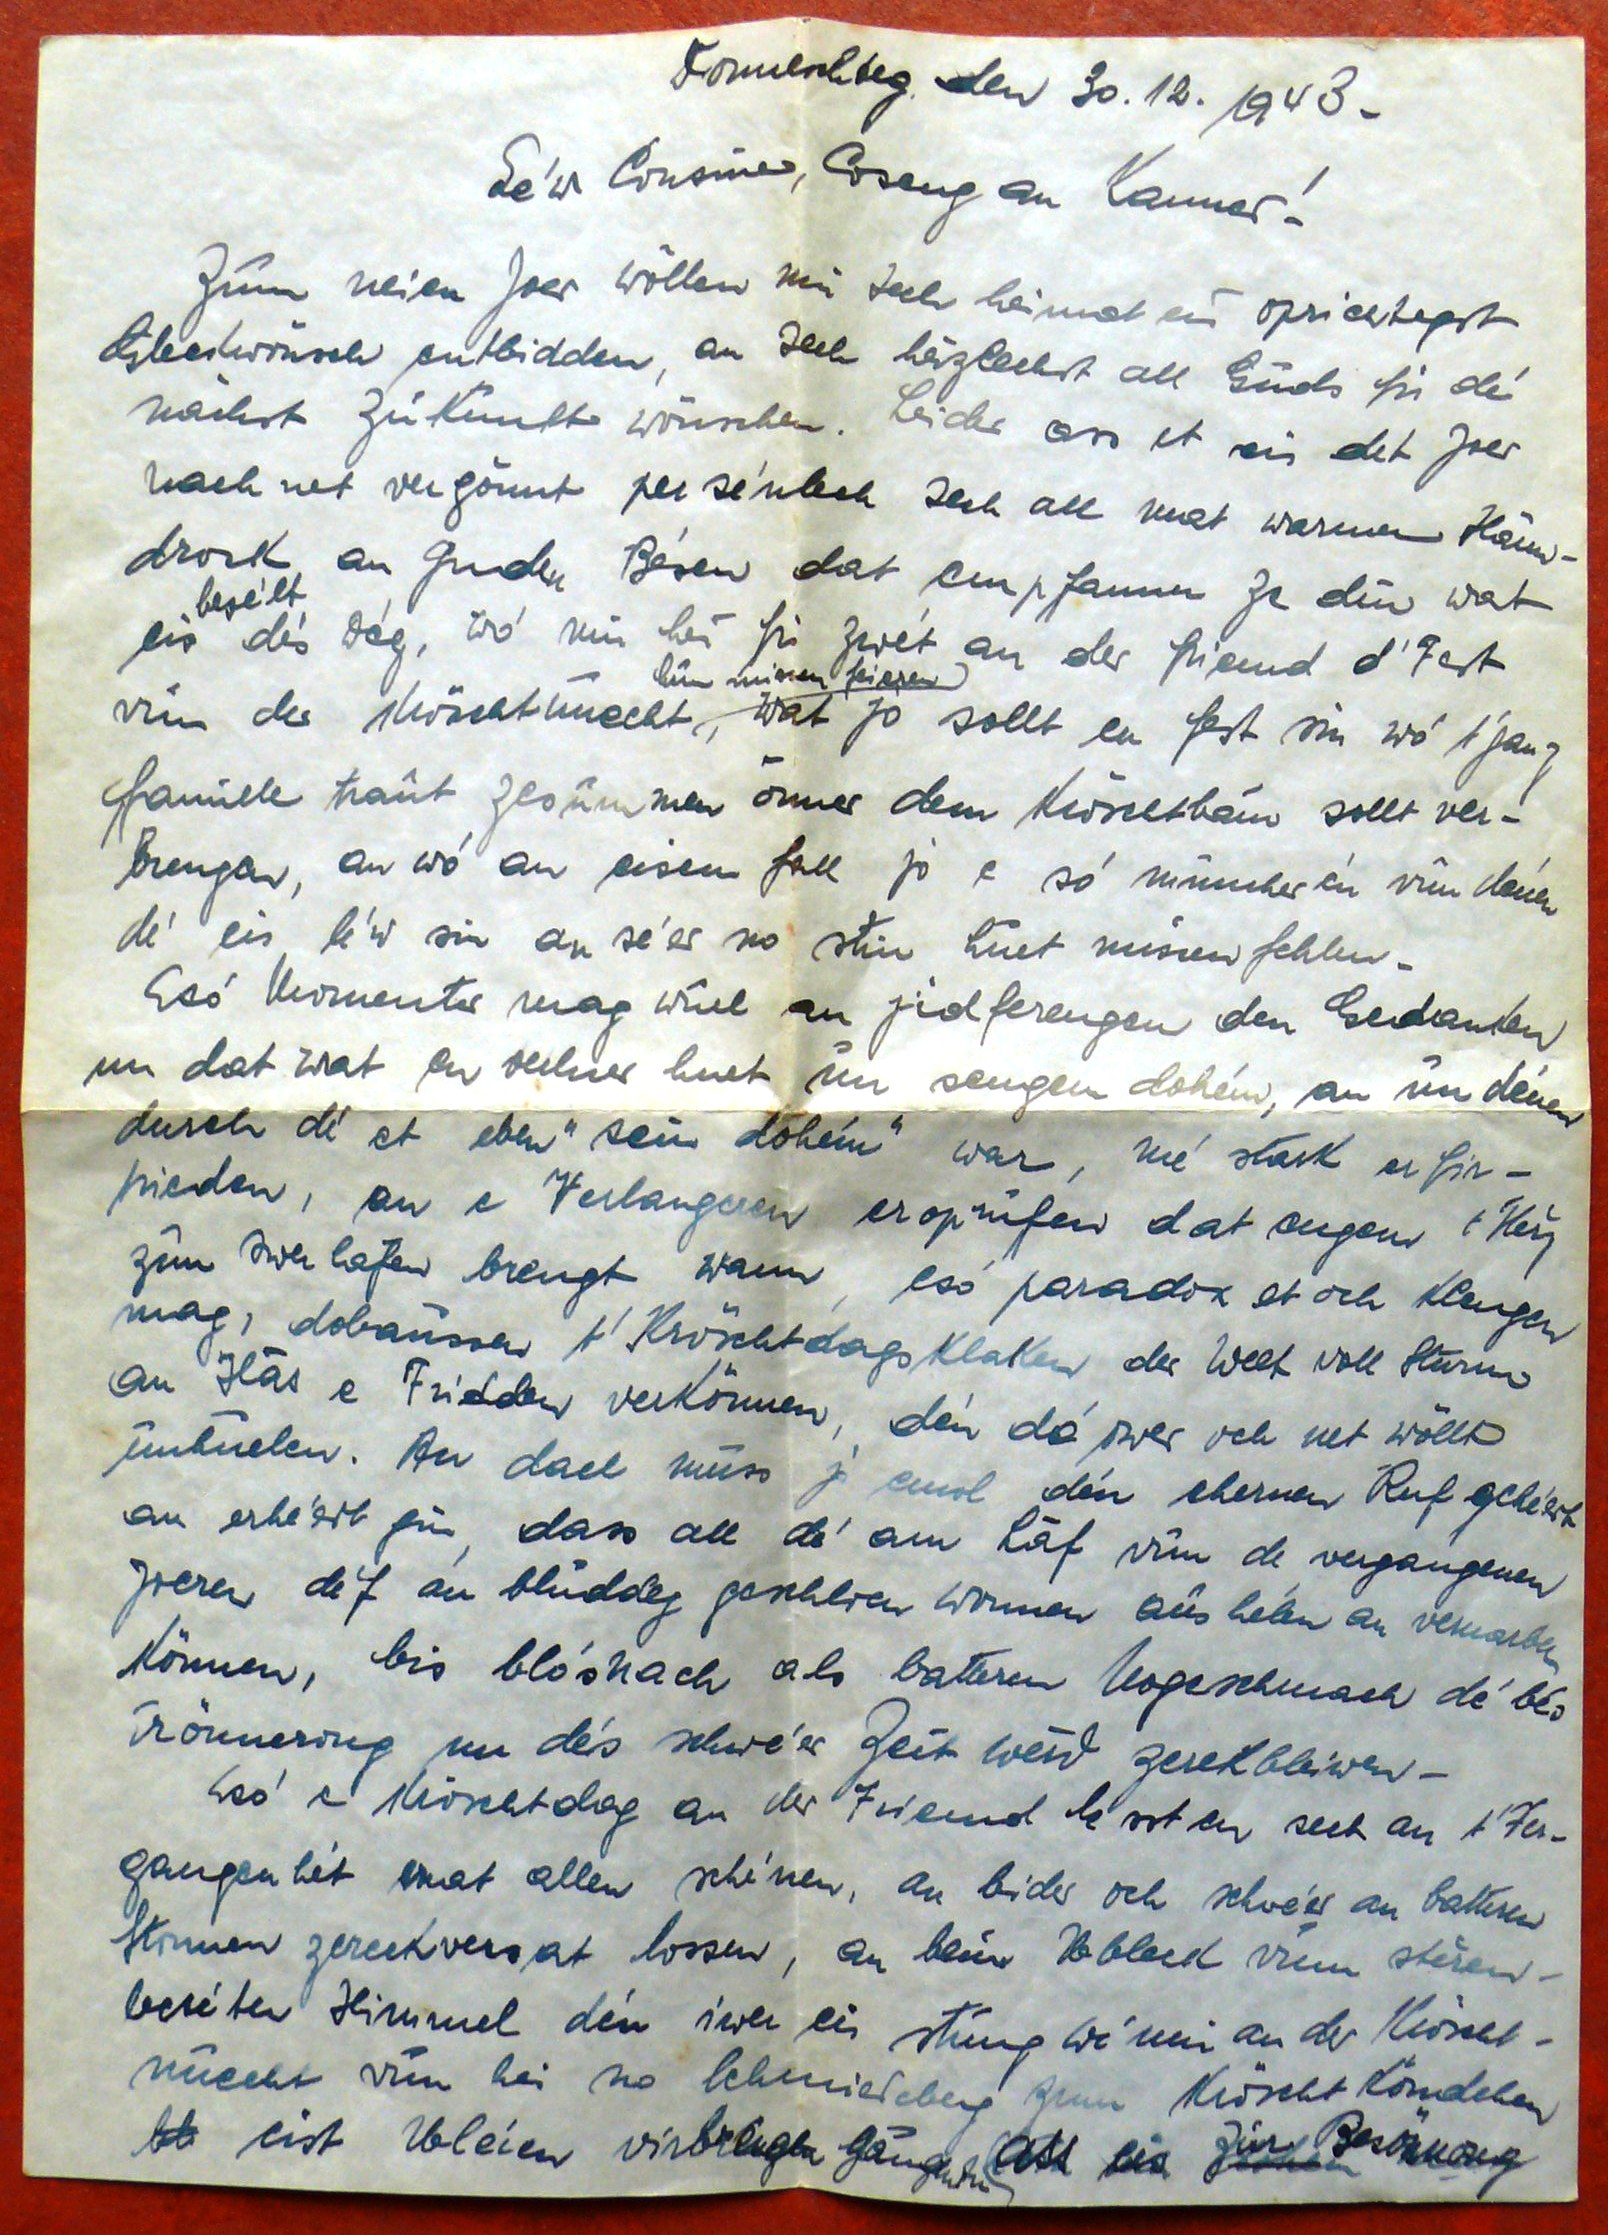 Donneschteg den 30.12.1943-
Le'w Cousine, Coseng an Kanner!-
Zum neien Joer wöllen mir Iech heimat eis oprichtegst
Gleckwönsch entbidden, an Iech häzlechst all Guds fir dé
nächst Zukunft wönschen. Leider ass et eis det Joer
nach net vergönnt perséinlech Iech all mat warmen Hänn-
drock an guden Bésen dat empfannen ze dun wat
eis beséelt dés Dég, wó mir hei fir zwét an der friemd d'Fest
vun der Kröschtnuecht, hun missen feieren wat jo sollt en fest sin wó t'ganz
famill traut zesummen önner dem Kröschtbam sollt ver-
brengen, an wó an eisem fall jo e só muncher én vun dénen
dé eis léw sin an sé'er no stin huet missen fehlen-
Esó Momenter mag wuel an jidferengen den Gedanken
un dat wat en secher huet un sengem dohém, an un dénen
durch dé et eben "sein dohém" war, mé stark erfir-
frieden, an e Verlangeren eroprufen dat engem t'Herz
zum iwerlafen brengt wann, esó paradox et och klengen
mag, dobaussen t'Kröschtdagsklaken der Welt voll Sturm
an Has e Fridden verkönnen, dén dó iwer och net wöllt
untuelen. An dach muss jo emol dén ehernen Ruf gehéert
an erhéert gin, dass all dé am Laf vun de vergangenen
Joeren déf an bluddeg geschloen wonnen aushélen an vernarben
können, bis blósnach als batteren Nogeschmach dé bés
Erönnerong un dés schwéer Zeit werd zerekbleiwen-
Esó e Kröschtdag an der Friemd lésst en sech an t'Ver-
gangenhét mat allen schénen, an leider och schwéer an batteren
Stonnen zereckversat lossen, an beim Ubleck vum stären-
beséten Himmel dén iwer eis stung wé mir an der Kröscht-
nuecht vun hei no Schmiedeberg zum Kröschtköndchen
eist Uleien virbrengen gungen ass eis zur Besönnung